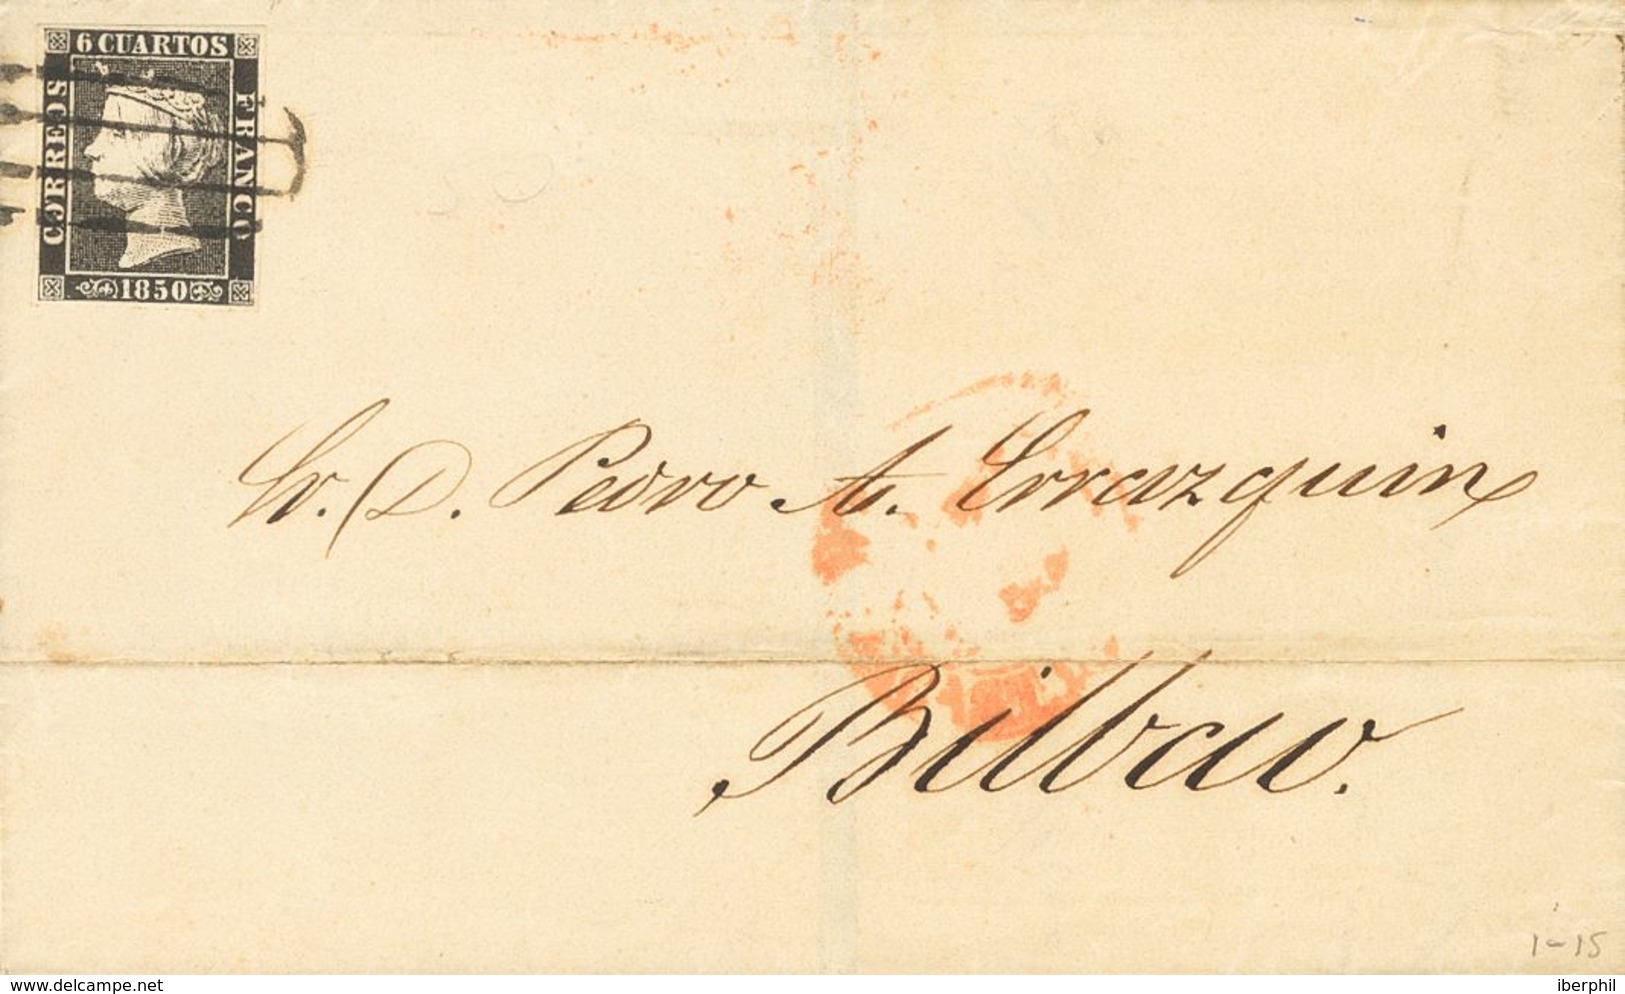 6 CUARTOS
CORREOS
FRANCO
1850
Sr. D. Pedro A. Errazquin
Bilbao.
1-15
delcampe.net
iberphil